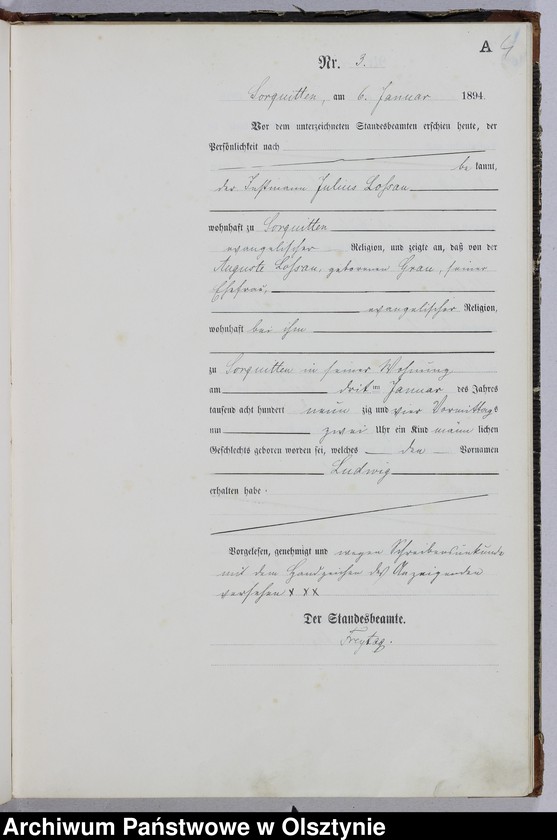 A 4
Nr. 3.
Sorquitten, am 6. Januar 1894.
Vor dem unterzeichneten Standesbeamten erschien heute, der
Persönlichkeit nach
be kannt,
der Instmann Julius Lossau
wohnhaft zu Sorquitten
evangelischer Religion, und zeigte an, daß von der
Auguste Lossau, geborenen Grau, seiner
Ehefrau,
evangelischer Religion,
wohnhaft bei ihm
zu Sorquitten in seiner Wohnung
am dritten Januar des Jahres
tausend acht hundert neun zig und vier Vormittags
um zwei Uhr ein Kind männ lichen
Geschlechts geboren worden sei, welches den Vornamen
Ludwig
erhalten habe.
Vorgelesen, genehmigt und wegen Schreibensunkunde
mit dem Handzeichen des Anzeigenden
versehen x x x
Der Standesbeamte.
Freytag.
Archiwum Państwowe w Olsztynie